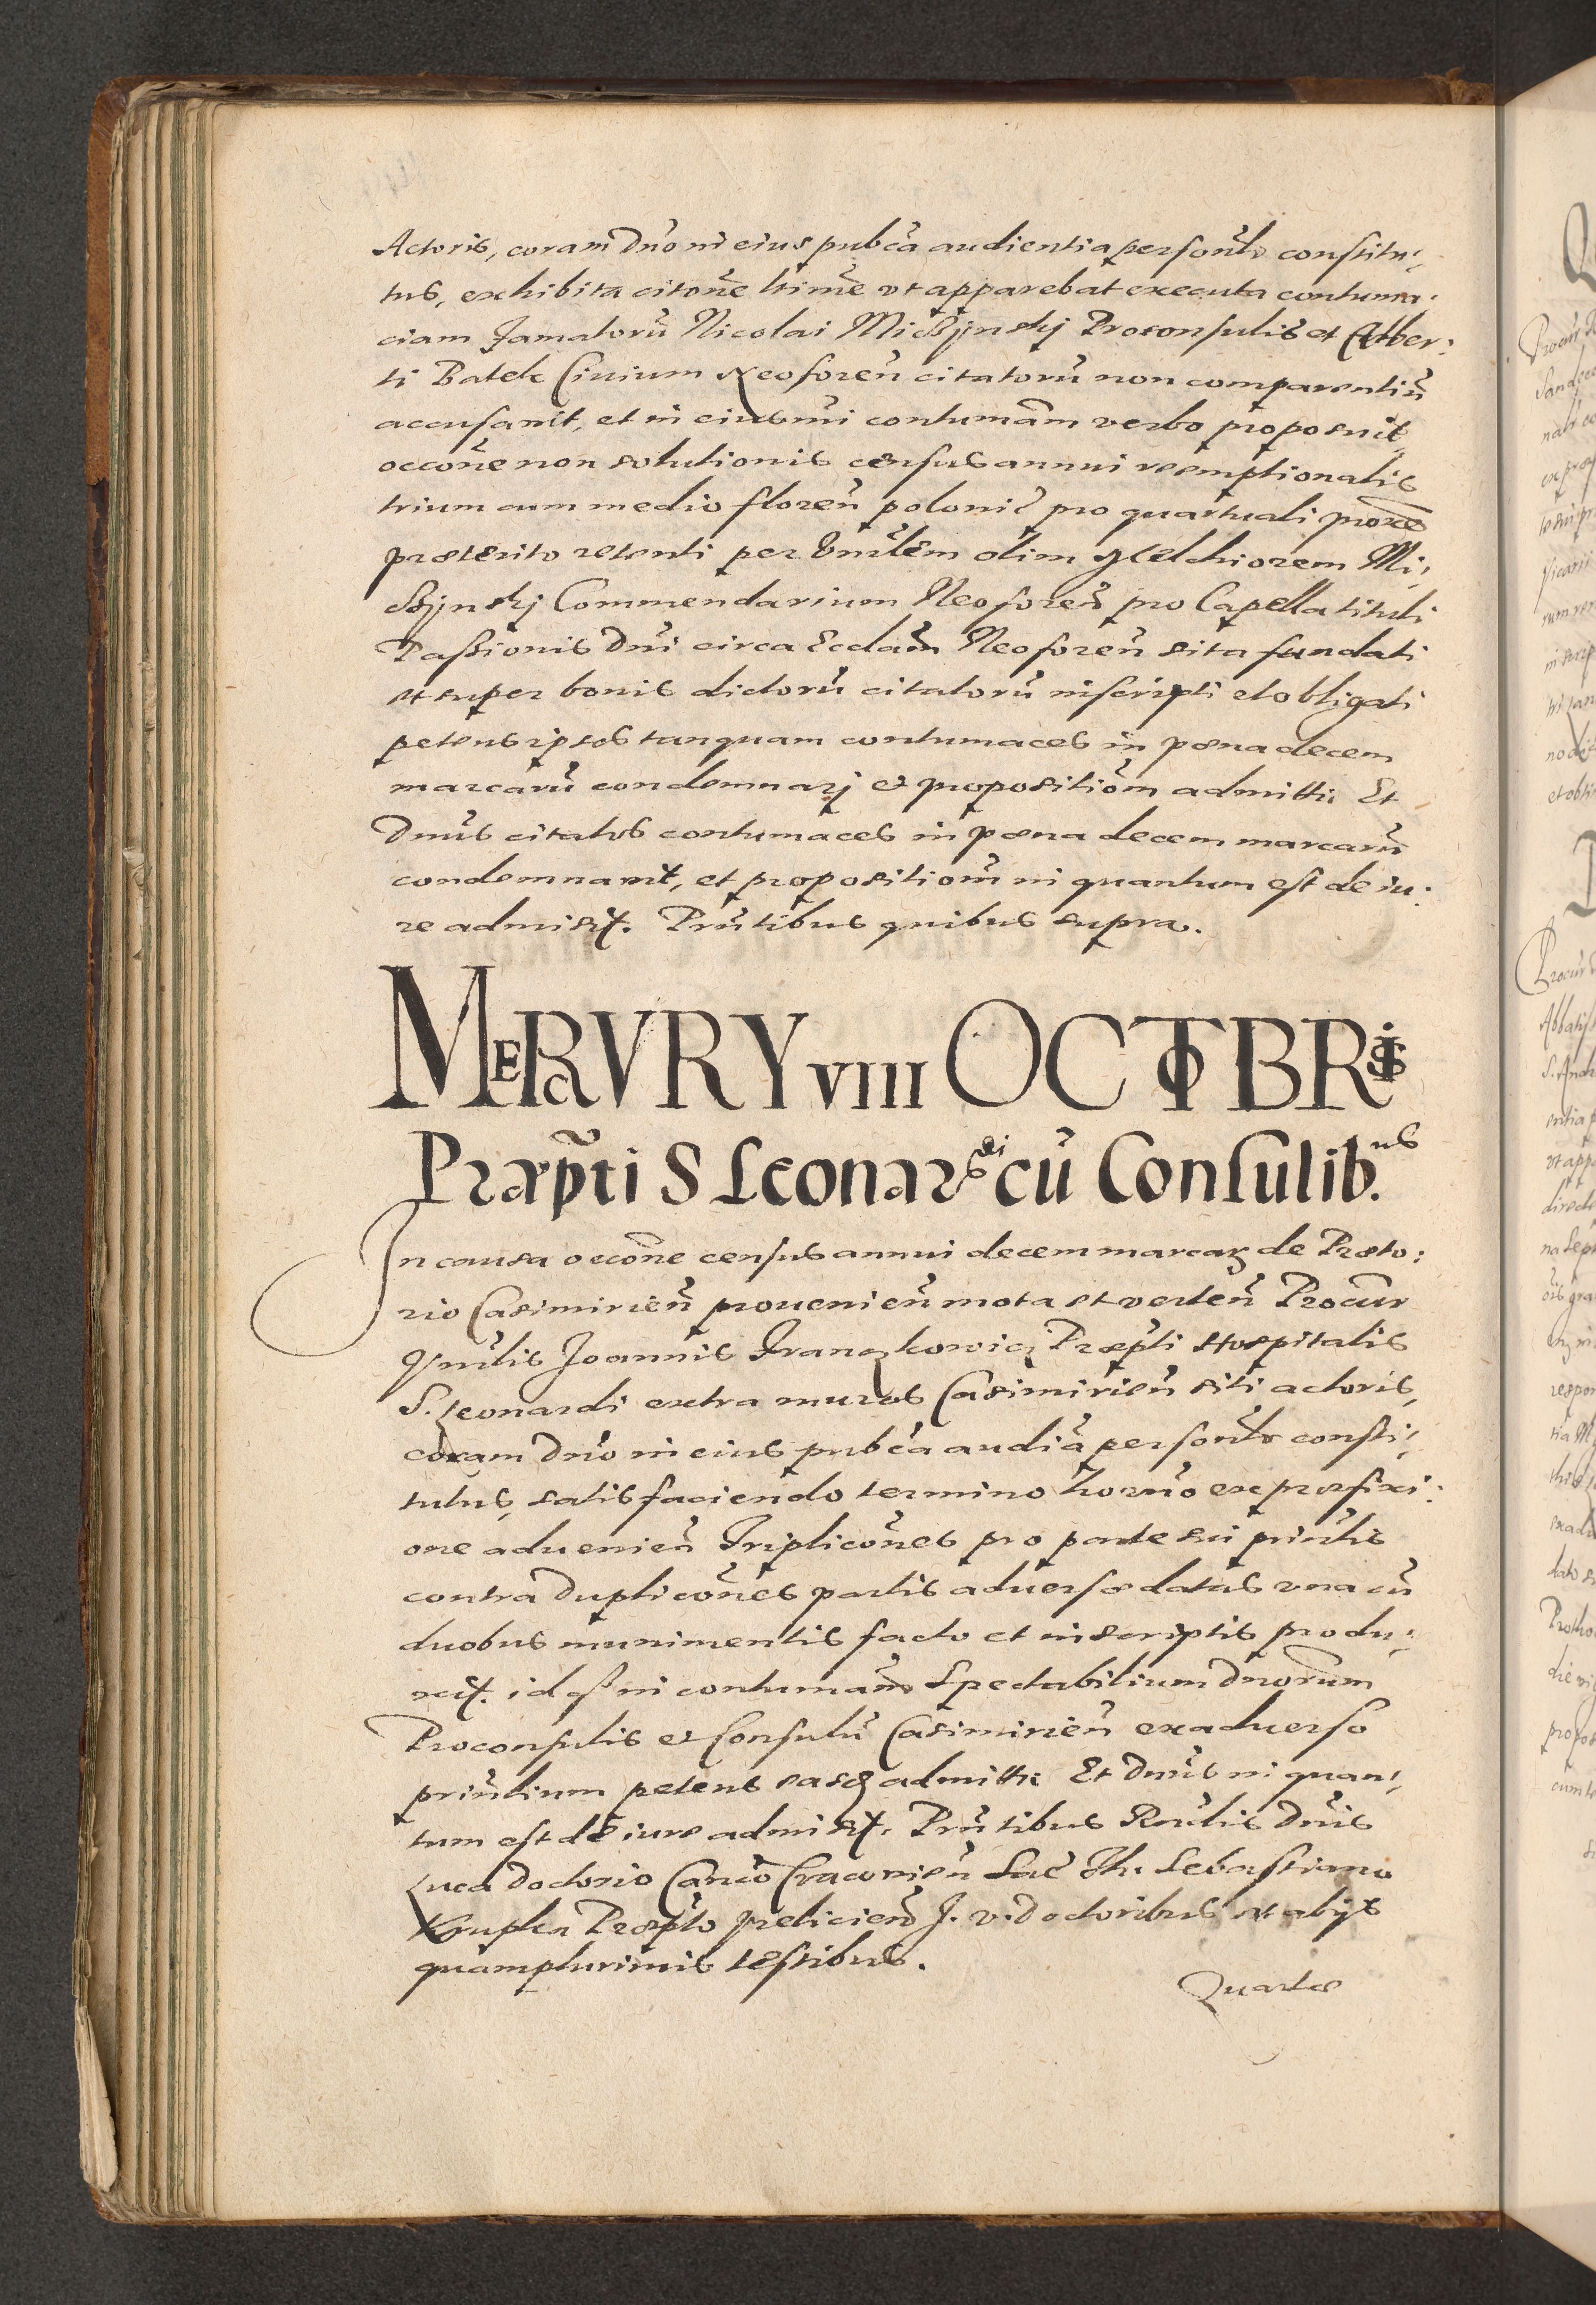 Actoris, coram Dno in eius pubca audientia personlr constitu:
tus, exhibita citone ltime vt apparebat executa contuma:
ciam famatoru Nicolai Proconsulis et Alber:
ti Batek Ciuium Neoforen citatoru non comparentiu
accusauit, et in eiusmi contumam verbo proposuit
occone non solutionis census annui reemptionalis
trium cum medio floren polonic pro quartuali proxe
præterito retenti per olim Melchiorem Mi:
Commendarium Neoforen pro Capella tituli
Passionis Dni circa Ecclam Neoforen sita fundati
et super bonis dictoru citatoru inscripti et obligati
petens ipsos tanquam contumaces in pœna decem
marcaru condemnarj et propositiom admitti. Et
Dnus citatos contumaces in pœna decem marcaru
condemnauit, et propositiom in quantum est de iu:
re admisit. Pntibus quibus supra.
MERCVRY VIII OCTOBRIS
Præpti S Leonardi cu Consulibus.
In causa occone census annui decem marcaꝝ de Præto:
rio Casimirien prouenien mota et verten Procur
Joannis Franczkowicz Præpti Hospitalis
S. Leonardi extra muros Casimirien siti actoris,
coram Dno in eius pubca audia personlr consti:
tutus, satisfaciendo termino horno ex præfixi:
one aduenien Triplicones pro parte sui prinlis
contra Duplicones partis aduersæ datas vna cu
duobus munimentis facto et in scriptis produ:
xit. idqȝ in contumam Spectabilium Dnorum
Proconsulis et Consulu Casimirien ex aduerso
prinlium petens easqȝ admitti. Et Dnus in quan:
tum est de iure admisit. Pntibus Rndis Dnis
Luca Doctorio Canco Cracouien Sac Th. Sebastiano
Krupka Præpto Jeliciens J. V. Doctoribus et alijs
quamplurimis testibus.
Quartæ